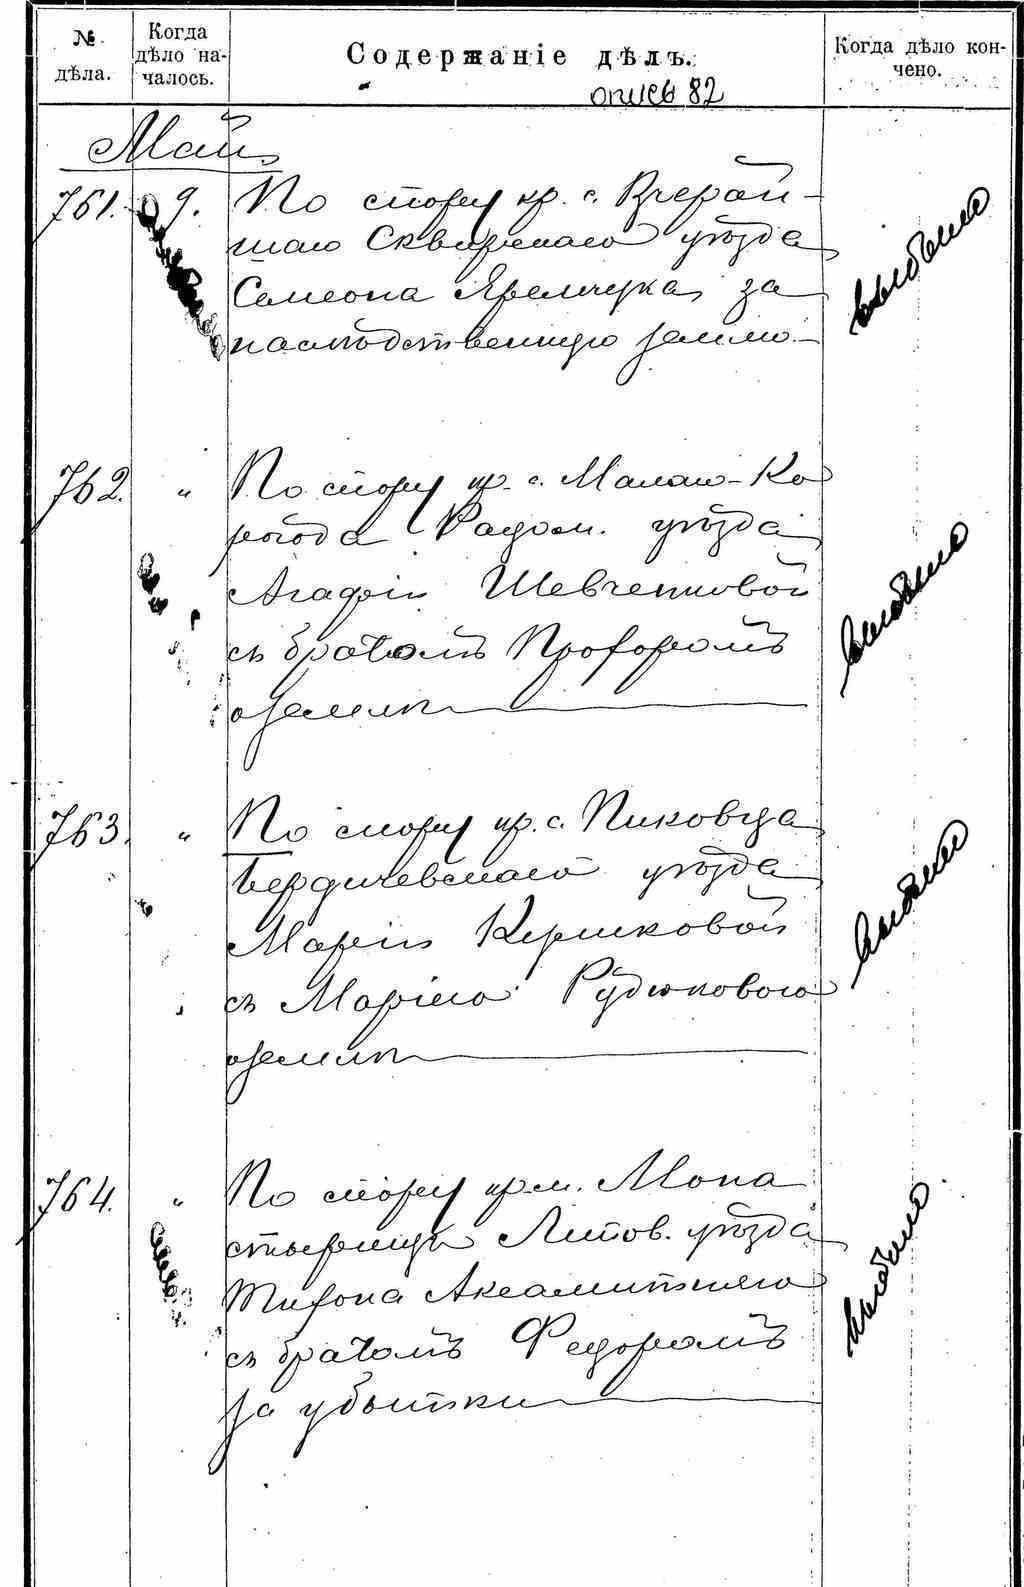 № дѣла.
Когда дѣло началось.
Содержаніе дѣлъ.
Когда дѣло кончено.
опись 82
Май
761. 9. По спору кр. с. Вчерай-
шаго Сквирскаго уѣзда
Семеона Яремчука за
наслѣдственную землю.
выбыло
762. " По спору кр. с. Малаго-Ко
рогода Радом. уѣзда
Агафіи Шевченковой
съ братомъ Прохоромъ
о землѣ
выбыло
763. " По спору кр. с. Пиковца
Бердичевскаго уѣзда
Маріи
съ Маріею Рудюковою
о землѣ
выбыло
764. " По спору кр. м. Мона
стырища Липов. уѣзда
Тихона Аксамитнаго
съ братомъ Федоромъ
за убытки
выбыло